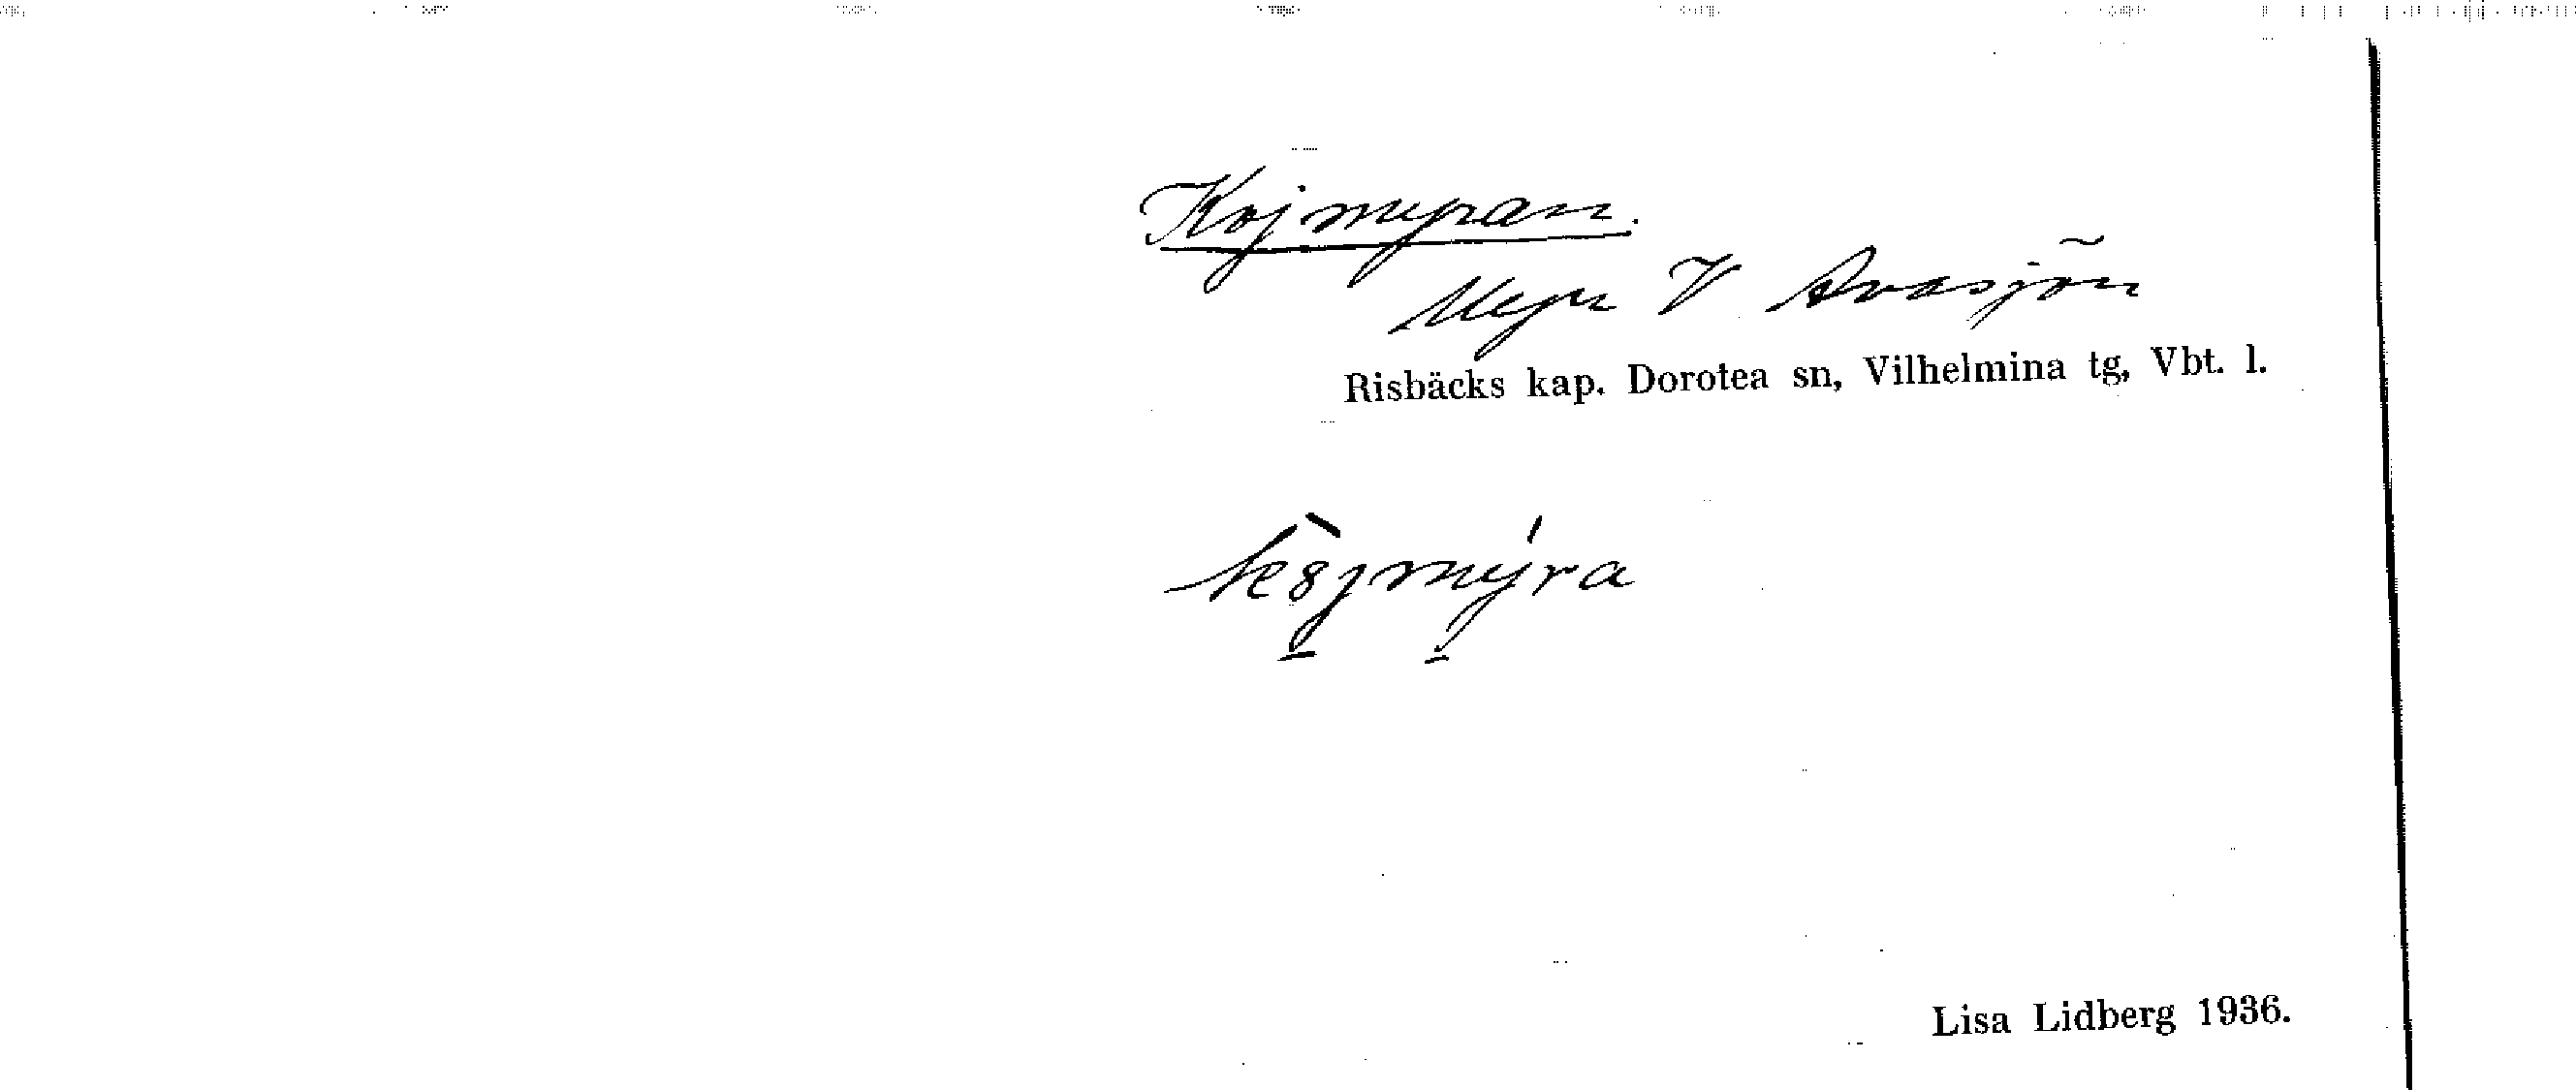 Kojmyran.
Myr V Avasjön
Risbäcks kap. Dorotea sn, Vilhelmina tg, Vbt. l.
Lisa Lidberg 1936.